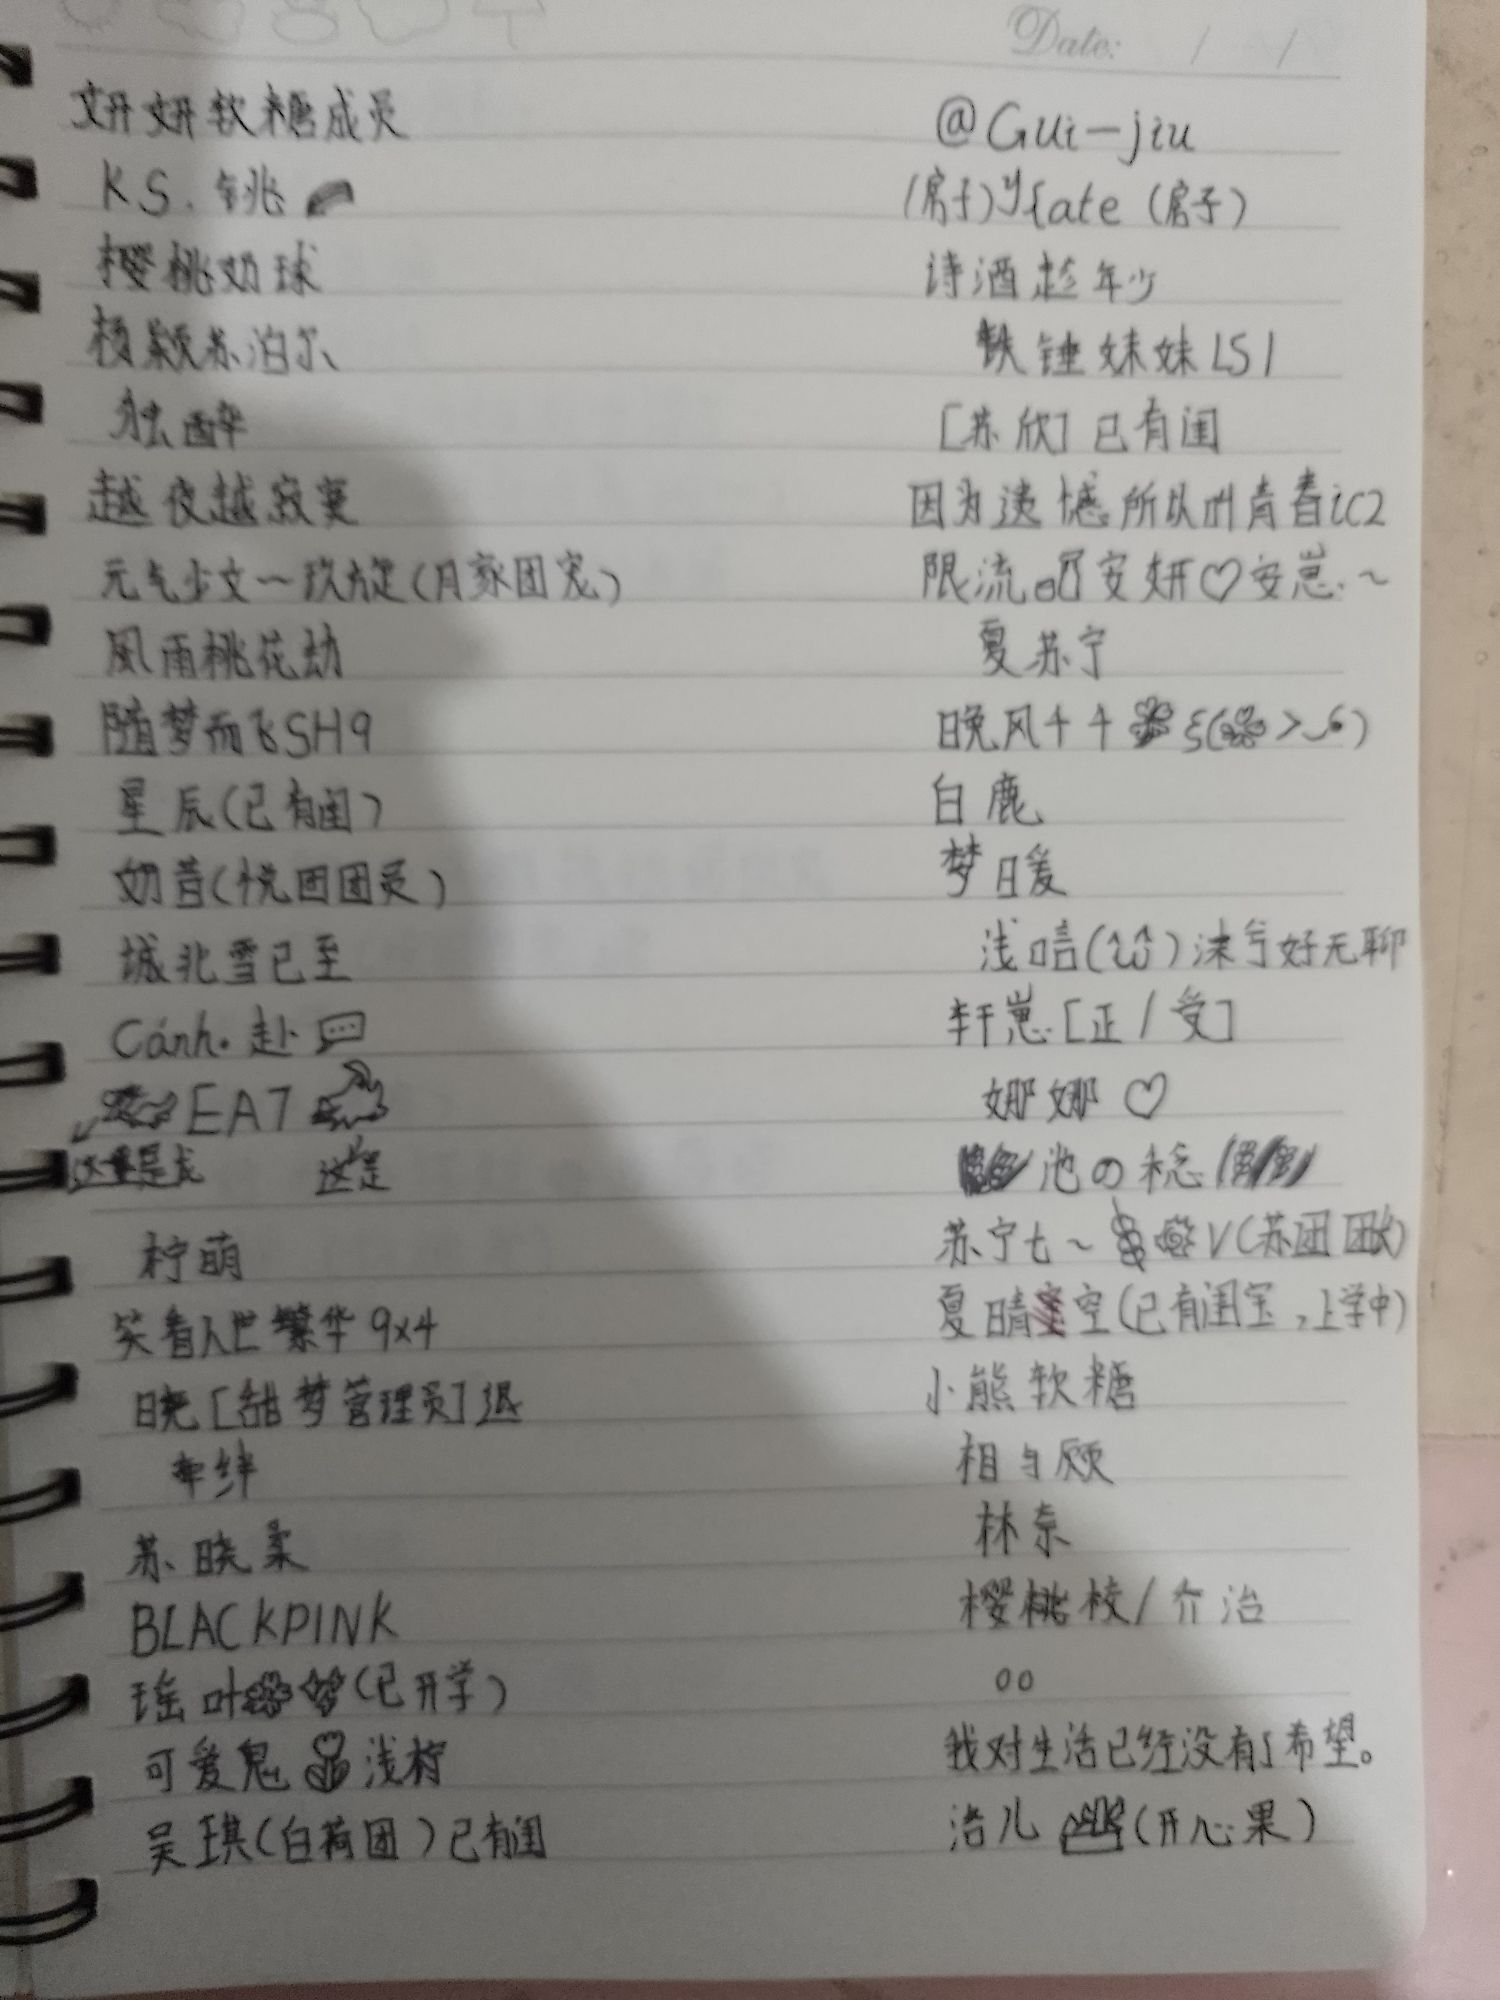 Date: / /
妍妍软糖成员
K.S.铫
樱桃奶球
杨颖苏泊尔
独醉
越夜越寂寞
元气少女~玖旋(月家团宠)
風雨桃花劫
随梦而飞SH9
星辰(已有闺)
奶昔(悦团团员)
城北雪已至
Cánh.赴
EA7
这里是龙 这是
柠萌
笑看人世繁华9x4
晓[甜梦管理员]退
牵绊
苏晓柔
BLACKPINK
瑶叶(已开学)
可爱鬼 浅柠
吴琪(白荷团)已有闺
@Gui-jiu
(房子)yfate(房子)
诗酒趁年少
铁锤妹妹LS1
[苏欣]已有闺
因为遗憾所以叫青春ic2
限流吧安妍♡安崽.~
夏苏宁
晚风千千 ξ(
白鹿
梦暖
浅唁( )沫兮好无聊
轩崽.[正/受]
娜娜♡
池の稔
苏宁七~ V(苏团团长)
夏晴空(已有闺宝,上学中)
小熊软糖
相与顾
林奈
樱桃校/介治
00
我对生活已经没有了希望。
洛儿 (开心果)